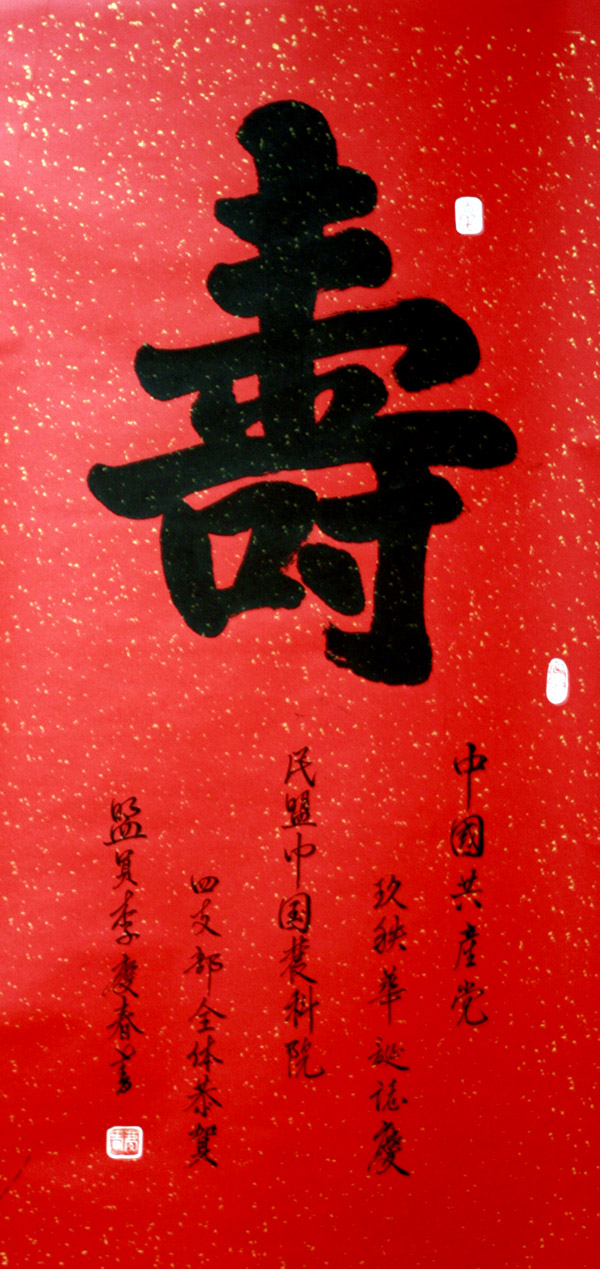 壽
中國共産党
玖秩華诞誌慶
民盟中国農科院
四支部全体恭賀
盟员李慶春書